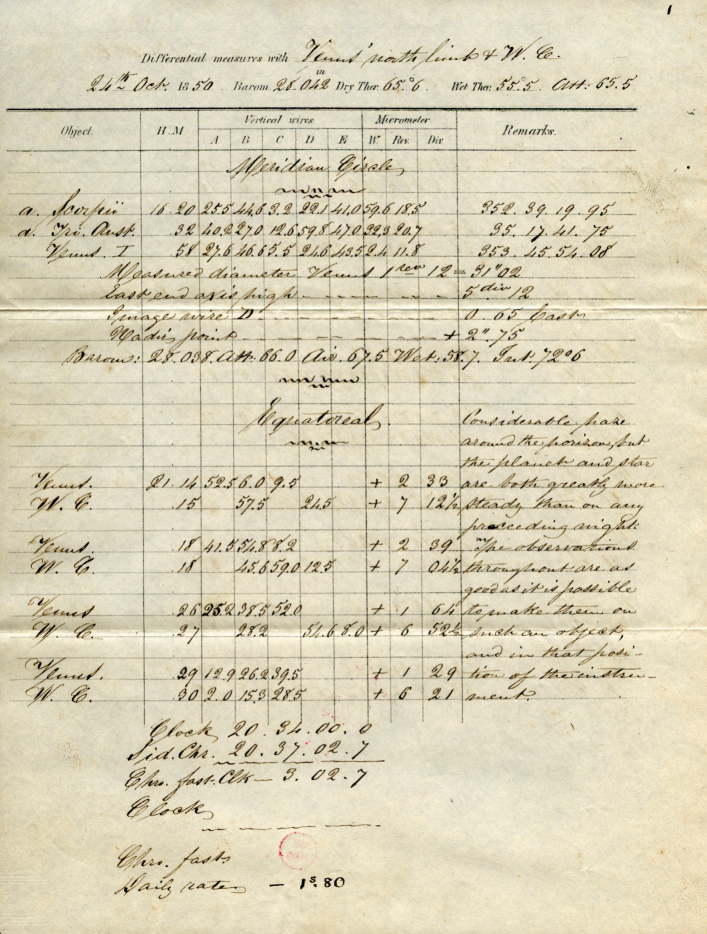 1
Differential measures with Venus' north limb & W. C.
24th Oct. 1850 Barom. 28.042 in Dry Ther: 65.°6 Wet Ther: 55.5 Att: 65.5
Object. H.M Vertical wires. Micrometer Remarks.
A B C D E W. Rev. Div
Meridian Circle
a. Scorpii 16 20 25.5 44.6 3.2 22.1 41.0 59.6 18.5 352. 39. 19. 95
a. Tri. Aust. 32 40.2 27.0 12.6 59.8 47.0 22.3 20.7 35. 17. 41. 75
Venus. I 58 27.6 46.6 5.5 24.6 43.5 2.4 11.8 353. 45. 54. 08
Measured diameter Venus 1 rev 12 = 31".02
East end axis high 5 div 12
Image wire D 0. 65 East
Nadir point + 2". 75
Barom: 28.038. Att: 66.0 Air. 67.5 Wet: 58.7. Int. 72°6
Equatoreal.
Considerable haze
around the horizon, but
the planet and star
Venus. 21. 14 52.5 6.0 9.5 + 2 33 are both greatly more
W. C. . 15 57.5 24.5 + 7 12½ steady than on any
preceeding night.
Venus. . 18 41.5 54.8 8.2 + 2 39 The observations
W. C. . 18 45.6 59.0 12.5 + 7 04½ throughout are as
good as it is possible
Venus . 26 25.2 38.5 52.0 + 1 64 to make them on
W. C. . 27 28.2 54.6 8.0 + 6 52½ such an object,
and in that posi-
Venus. . 29 12.9 26.2 39.5 + 1 29 tion of the instru-
W. C. . 30 2.0 15.3 28.5 + 6 21 ment.
Clock 20. 34. 00. 0
Sid. Chr. 20. 37. 02. 7
Chro. fast. Clk — 3. 02. 7
Clock
Chro. fast
Daily rate — 1s. 80